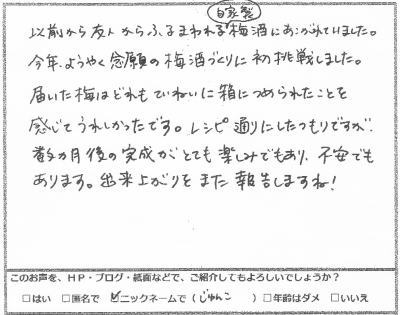 以前から友人からふるまわれる自家製梅酒にあこがれていました。
今年、ようやく念願の梅酒づくりに初挑戦しました。
届いた梅はどれもていねいに箱につめられたことを
感じてうれしかったです。レシピ通りにしたつもりですが、
数カ月後の完成がとても楽しみでもあり、不安でも
あります。出来上がりをまた報告しますね!
このお声を、HP・ブログ・紙面などで、ご紹介してもよろしいでしょうか?
□はい □匿名で ☑ニックネームで(じゅんこ )□年齢はダメ □いいえ